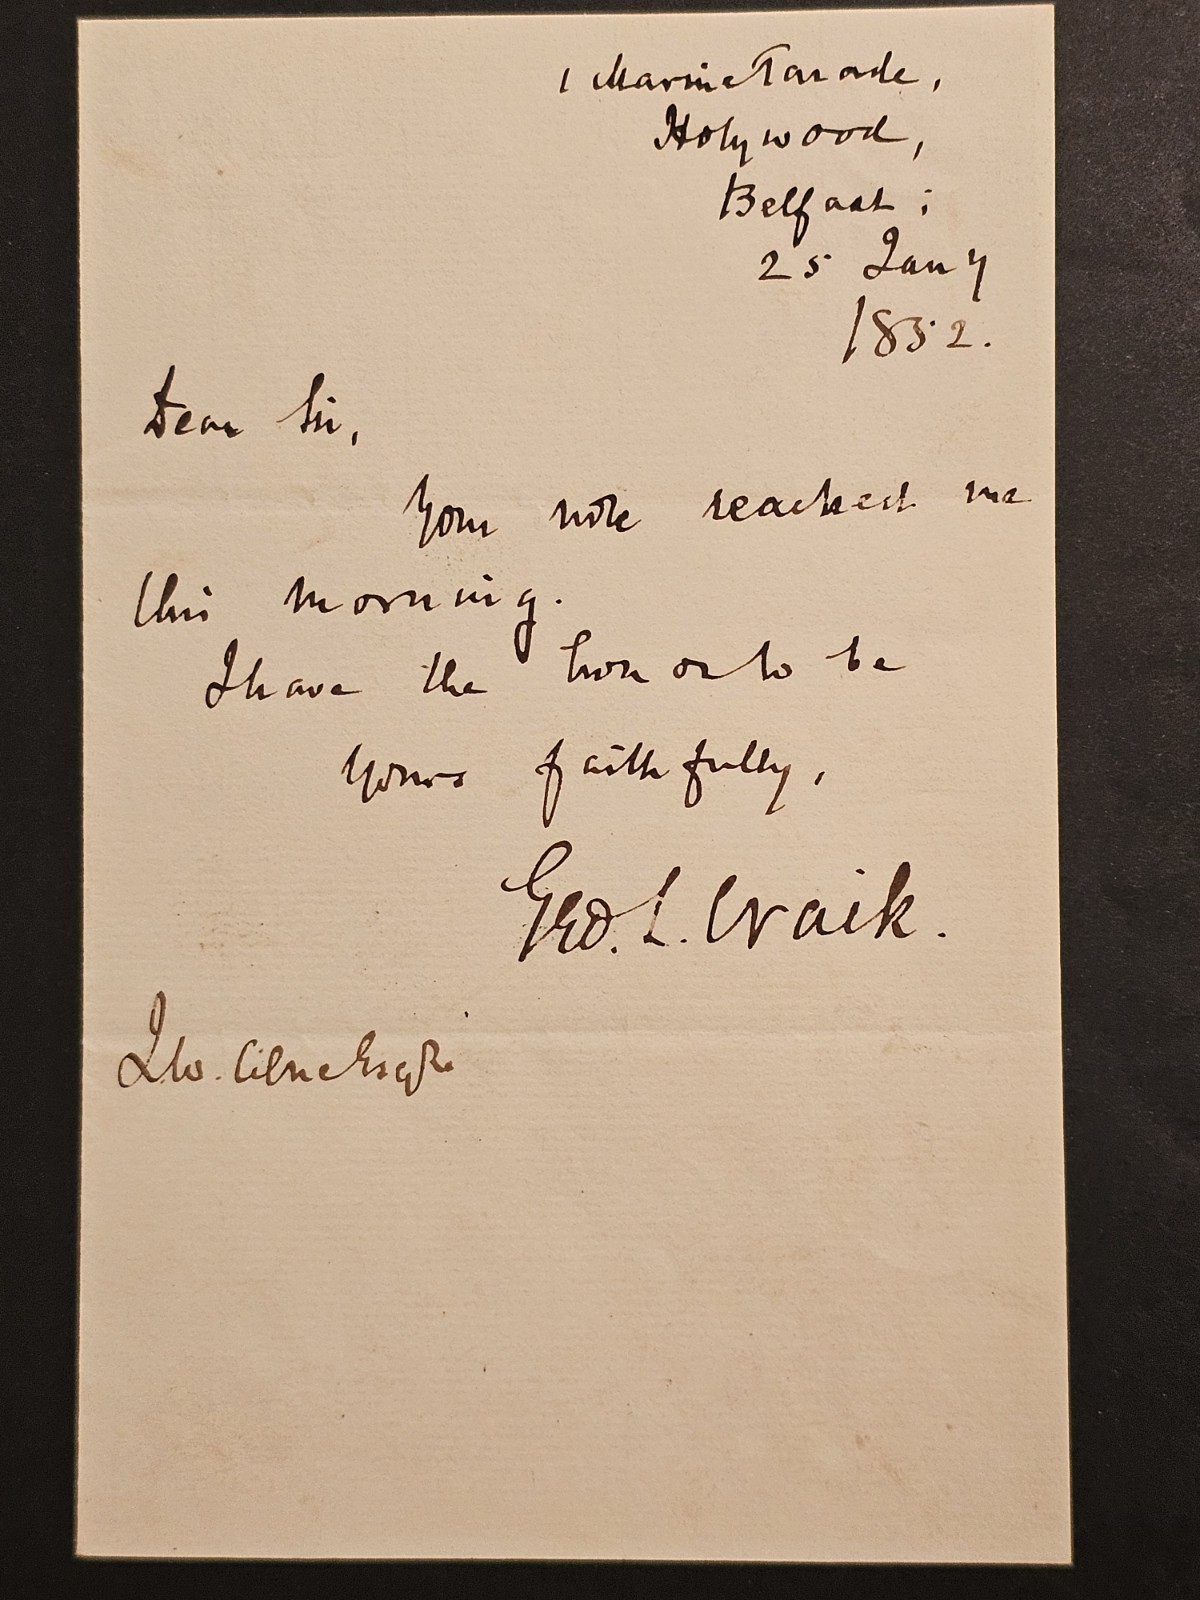 1 Marine Parade,
Holywood,
Belfast;
25 Jany
1852.
Dear Sir,
Your note reached me
this morning.
I have the honor to be
Yours faithfully,
Geo. L. Craik.
Esqr.